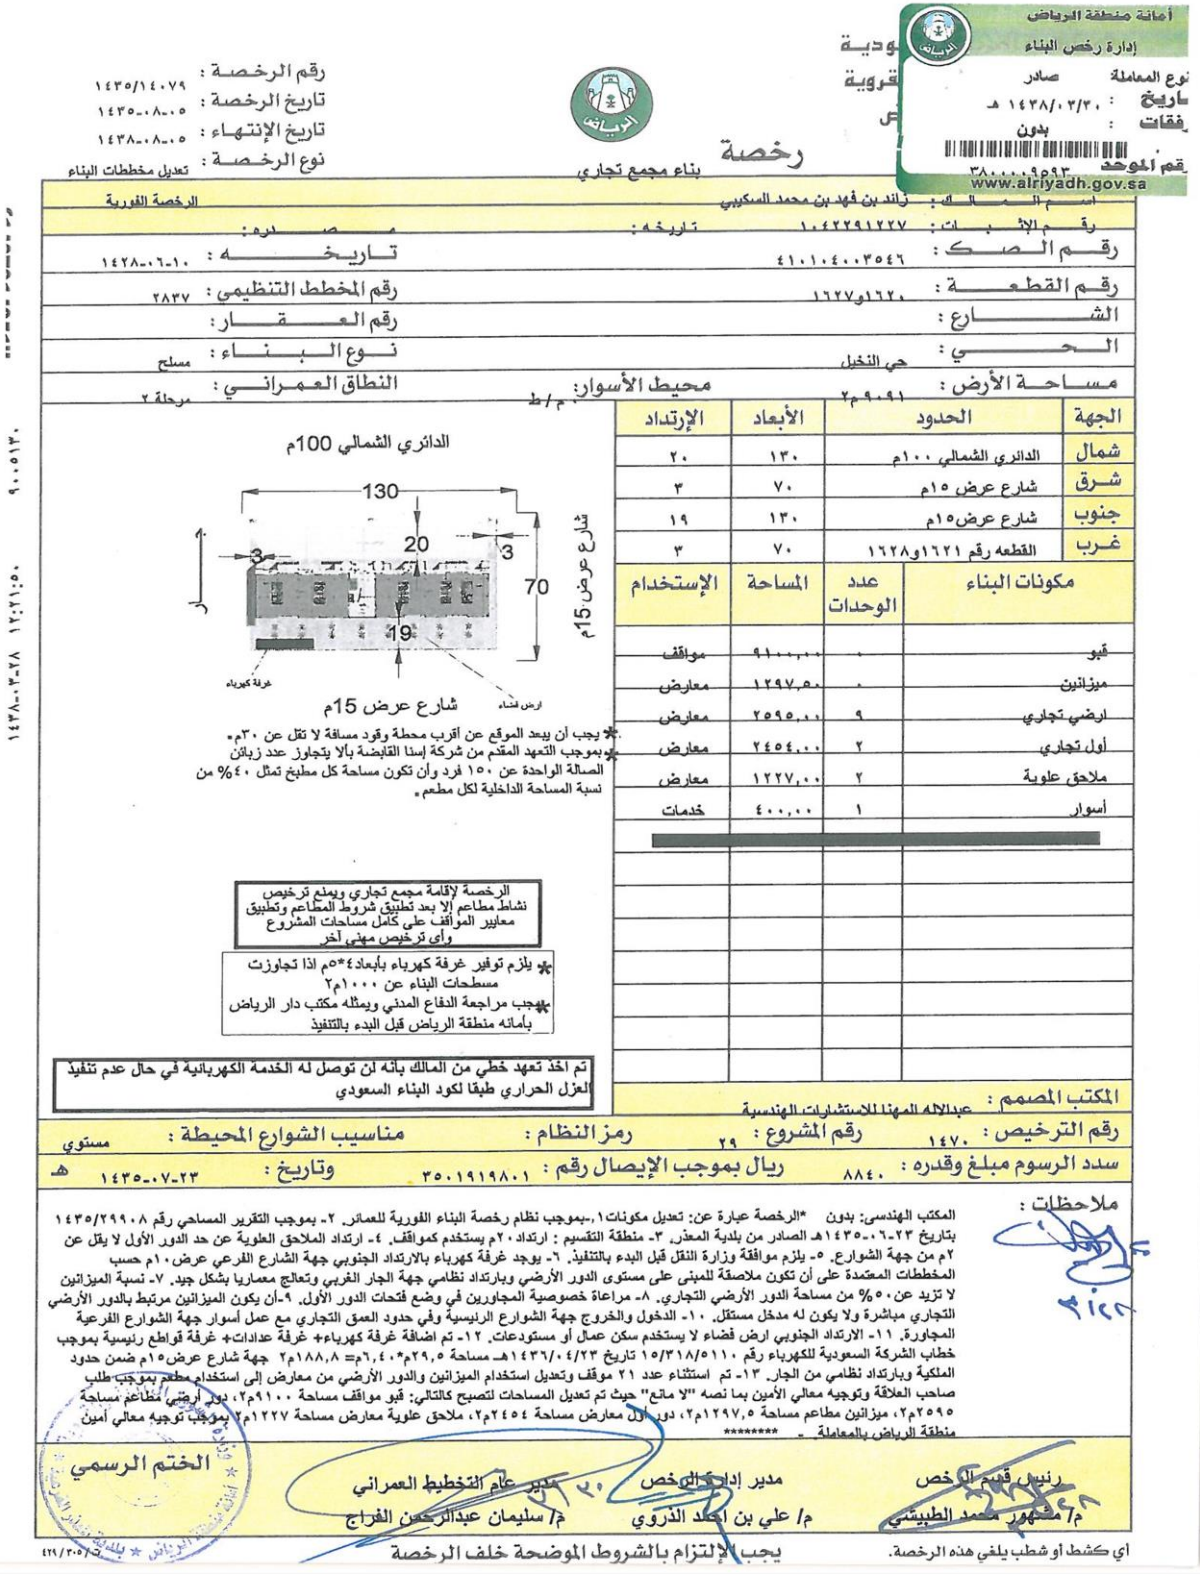 أمانة منطقة الرياض
إدارة رخص البناء
نوع المعاملة صادر
١٤٣٨/٠٣/٣٠ هـ
بدون
٣٨٠٠٠٠٠٩٥٩٣
www.alriyadh.gov.sa
رقم الرخصة : ١٤٣٥/١٤٠٧٩
تاريخ الرخصة : ١٤٣٥-٠٨-٠٥
تاريخ الإنتهاء : ١٤٣٨-٠٨-٠٥
نوع الرخصة : تعديل مخططات البناء
الرياض
رخصة
بناء مجمع تجاري
اسم المالك : زائد بن فهد بن محمد السكيبي الرخصة الفورية
رقم الإثبات : ١٠٤٢٢٩١٢٢٧ تاريخه : مصدره :
رقم الصك : ٤١٠١٠٤٠٠٣٥٤٦ تاريخه : ١٤٢٨-٠٦-١٠
رقم القطعة : ١٦٢٠و١٦٢٧ رقم المخطط التنظيمي : ٢٨٣٧
الشارع : رقم العقار :
الحي : حي النخيل نوع البناء : مسلح
مساحة الأرض : ٩٠٩١م٢ محيط الأسوار: م/ط النطاق العمراني : مرحلة ٢
الجهة الحدود الأبعاد الإرتداد
شمال الدائري الشمالي ١٠٠م ١٣٠ ٢٠
شرق شارع عرض ١٥م ٧٠ ٣
جنوب شارع عرض١٥م ١٣٠ ١٩
غرب القطعه رقم ١٦٢١و١٦٢٨ ٧٠ ٣
مكونات البناء عدد الوحدات المساحة الإستخدام
قبو ٠ ٩١٠٠,٠٠ مواقف
ميزانين ٠ ١٢٩٧,٥٠ معارض
ارضي تجاري ٩ ٢٥٩٥,٠٠ معارض
أول تجاري ٢ ٢٤٥٤,٠٠ معارض
ملاحق علوية ٢ ١٢٢٧,٠٠ معارض
أسوار ١ ٤٠٠,٠٠ خدمات
الدائري الشمالي 100م
130
20
3
3
70
19
شارع عرض 15م
جار
غرفة كهرباء
ارض فضاء
شارع عرض 15م
* يجب أن يبعد الموقع عن أقرب محطة وقود مسافة لا تقل عن ٣٠م.
* بموجب التعهد المقدم من شركة إسنا القابضة بألا يتجاوز عدد زبائن
الصالة الواحدة عن ١٥٠ فرد وأن تكون مساحة كل مطبخ تمثل ٤٠% من
نسبة المساحة الداخلية لكل مطعم.
الرخصة لإقامة مجمع تجاري ويمنع ترخيص
نشاط مطاعم إلا بعد تطبيق شروط المطاعم وتطبيق
معايير المواقف على كامل مساحات المشروع
وأي ترخيص مهني آخر
* يلزم توفير غرفة كهرباء بأبعاد٤*٥م اذا تجاوزت
مسطحات البناء عن ١٠٠٠م٢
* يجب مراجعة الدفاع المدني ويمثله مكتب دار الرياض
بأمانه منطقة الرياض قبل البدء بالتنفيذ
تم اخذ تعهد خطي من المالك بأنه لن توصل له الخدمة الكهربائية في حال عدم تنفيذ
العزل الحراري طبقا لكود البناء السعودي
المكتب المصمم : عبدالاله المهنا للاستشارات الهندسية
رقم الترخيص : ١٤٧٠ رقم المشروع : ٢٩ رمز النظام : مناسيب الشوارع المحيطة : مستوي
سدد الرسوم مبلغ وقدره : ٨٨٤٠ ريال بموجب الإيصال رقم : ٣٥٠١٩١٩٨٠١ وتاريخ : ١٤٣٥-٠٧-٢٣ هـ
ملاحظات :
المكتب الهندسى: بدون *الرخصة عبارة عن: تعديل مكونات١,-بموجب نظام رخصة البناء الفورية للعمائر. ٢- بموجب التقرير المساحي رقم ١٤٣٥/٢٩٩٠٨
بتاريخ ٢٣-٠٦-١٤٣٥هـ الصادر من بلدية المعذر. ٣- منطقة التقسيم : ارتداد٢٠م يستخدم كمواقف. ٤- ارتداد الملاحق العلوية عن حد الدور الأول لا يقل عن
٢م من جهة الشوارع. ٥- يلزم موافقة وزارة النقل قبل البدء بالتنفيذ. ٦- يوجد غرفة كهرباء بالارتداد الجنوبي جهة الشارع الفرعي عرض١٠م حسب
المخططات المعتمدة على أن تكون ملاصقة للمبنى على مستوى الدور الأرضي وبارتداد نظامي جهة الجار الغربي وتعالج معماريا بشكل جيد. ٧- نسبة الميزانين
لا تزيد عن٥٠% من مساحة الدور الأرضي التجاري. ٨- مراعاة خصوصية المجاورين في وضع فتحات الدور الأول. ٩-أن يكون الميزانين مرتبط بالدور الأرضي
التجاري مباشرة ولا يكون له مدخل مستقل. ١٠- الدخول والخروج جهة الشوارع الرئيسية وفي حدود العمق التجاري مع عمل أسوار جهة الشوارع الفرعية
المجاورة. ١١- الارتداد الجنوبي ارض فضاء لا يستخدم سكن عمال أو مستودعات. ١٢- تم اضافة غرفة كهرباء+ غرفة عدادات+ غرفة قواطع رئيسية بموجب
خطاب الشركة السعودية للكهرباء رقم ١٥/٣١٨/٥١١٠ تاريخ ١٤٣٦/٠٤/٢٣هـ مساحة ٢٩,٥م*٦,٤٠م=١٨٨,٨م٢ جهة شارع عرض١٥م ضمن حدود
الملكية وبارتداد نظامي من الجار. ١٣- تم استثناء عدد ٢١ موقف وتعديل استخدام الميزانين والدور الأرضي من معارض إلى استخدام مطعم بموجب طلب
صاحب العلاقة وتوجيه معالي الأمين بما نصه "لا مانع" حيث تم تعديل المساحات لتصبح كالتالي: قبو مواقف مساحة ٩١٠٠م٢، دور أرضي مطاعم مساحة
٢٥٩٥م٢، ميزانين مطاعم مساحة ١٢٩٧,٥م٢، دور أول معارض مساحة ٢٤٥٤م٢، ملاحق علوية معارض مساحة ١٢٢٧م٢ بموجب توجيه معالي أمين
منطقة الرياض بالمعاملة. - ********
رئيس قسم الرخص مدير إدارة الرخص مدير عام التخطيط العمراني الختم الرسمي
م/ مشهور محمد الطبيشي م/ علي بن احمد الذروي م/ سليمان عبدالرحمن الفراج
أي كشط أو شطب يلغي هذه الرخصة. يجب الإلتزام بالشروط الموضحة خلف الرخصة ت/٤٢٩/٣٠٥
١٤٣٨-٠٣-٢٨ ١٢:٢١:٥٠ ٩٠٠٥١٣٠